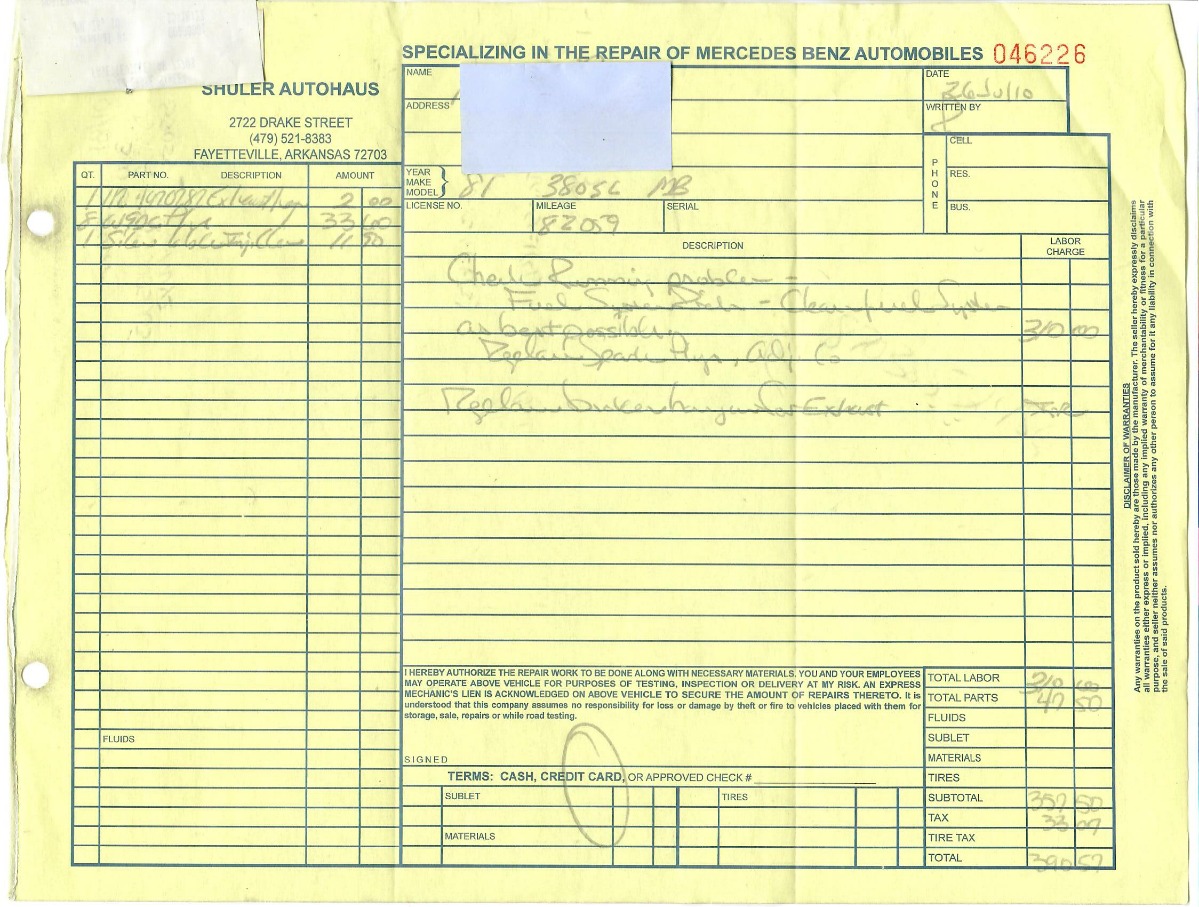 SPECIALIZING IN THE REPAIR OF MERCEDES BENZ AUTOMOBILES 046226
SHULER AUTOHAUS
2722 DRAKE STREET
(479) 521-8383
FAYETTEVILLE, ARKANSAS 72703
NAME
DATE 26 Jul 10
ADDRESS
WRITTEN BY
PHONE
CELL
RES.
BUS.
YEAR MAKE MODEL 81 380SL MB
LICENSE NO. MILEAGE 82059 SERIAL
QT. PART NO. DESCRIPTION AMOUNT
1 2 00
8 33 60
1 11 90
DESCRIPTION LABOR CHARGE
Check Running problem -
Fuel System - Clean fuel System
as best possible 310 00
Replace Spark Plugs, Adj. Co
Replace broken hanger for Exhaust
I HEREBY AUTHORIZE THE REPAIR WORK TO BE DONE ALONG WITH NECESSARY MATERIALS. YOU AND YOUR EMPLOYEES
MAY OPERATE ABOVE VEHICLE FOR PURPOSES OF TESTING, INSPECTION OR DELIVERY AT MY RISK. AN EXPRESS
MECHANIC'S LIEN IS ACKNOWLEDGED ON ABOVE VEHICLE TO SECURE THE AMOUNT OF REPAIRS THERETO. It is
understood that this company assumes no responsibility for loss or damage by theft or fire to vehicles placed with them for
storage, sale, repairs or while road testing.
SIGNED
TERMS: CASH, CREDIT CARD, OR APPROVED CHECK #
SUBLET TIRES
MATERIALS
FLUIDS
TOTAL LABOR 310 00
TOTAL PARTS 47 50
FLUIDS
SUBLET
MATERIALS
TIRES
SUBTOTAL 357 50
TAX 33 07
TIRE TAX
TOTAL 390 57
DISCLAIMER OF WARRANTIES
Any warranties on the product sold hereby are those made by the manufacturer. The seller hereby expressly disclaims
all warranties either express or implied, including any implied warranty of merchantability or fitness for a particular
purpose, and seller neither assumes nor authorizes any other person to assume for it any liability in connection with
the sale of said products.